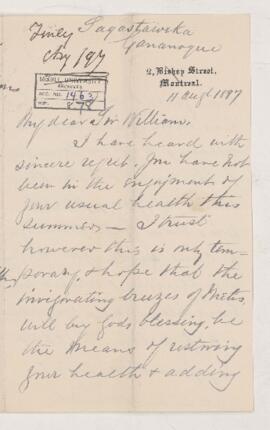 Finley
Aug/97
Sagastaweka
Gananoque
2, Bishop Street,
Montreal.
11 Augt 1897
McGILL UNIVERSITY
ARCHIVES
ACC. NO. 1463
REF. 878
My dear Sir William,
I have heard with
sincere regret you have not
been in the enjoyment of
your usual health this
summer — I trust
however this is only tem-
porary, & hope that the
invigorating breezes of Metis,
will by Gods blessing, be
the means of restoring
your health & adding